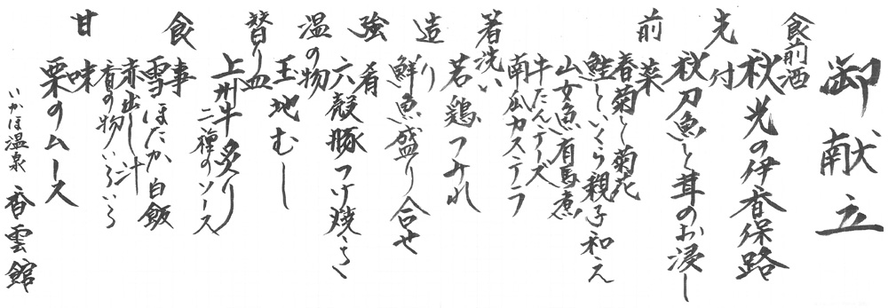 御献立
食前酒
秋光の伊香保路
先付
秋刀魚と茸のお浸し
前菜
春菊と菊花
鮭といくら親子和え
山女魚有馬煮
牛たんチーズ
南瓜カステラ
箸洗い
若鶏つみれ
造り
鮮魚盛り合せ
強肴
六穀豚つけ焼き
温の物
玉地むし
替り皿
上州牛炙り
二種のソース
食事
雪ほたか白飯
赤出し汁
香の物いろいろ
甘味
栗のムース
いかほ温泉 香雲館